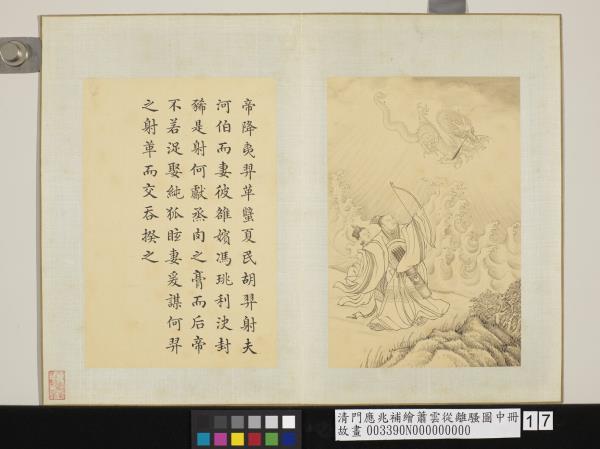 帝降夷羿革蠥夏民胡羿射夫
河伯而妻彼雒嬪馮珧利決封
豨是射何獻蒸肉之膏而后帝
不若浞娶純狐眩妻爰謀何羿
之射革而交吞揆之
清門應兆補繪蕭雲從離騷圖中冊
故畫 003390N000000000
17